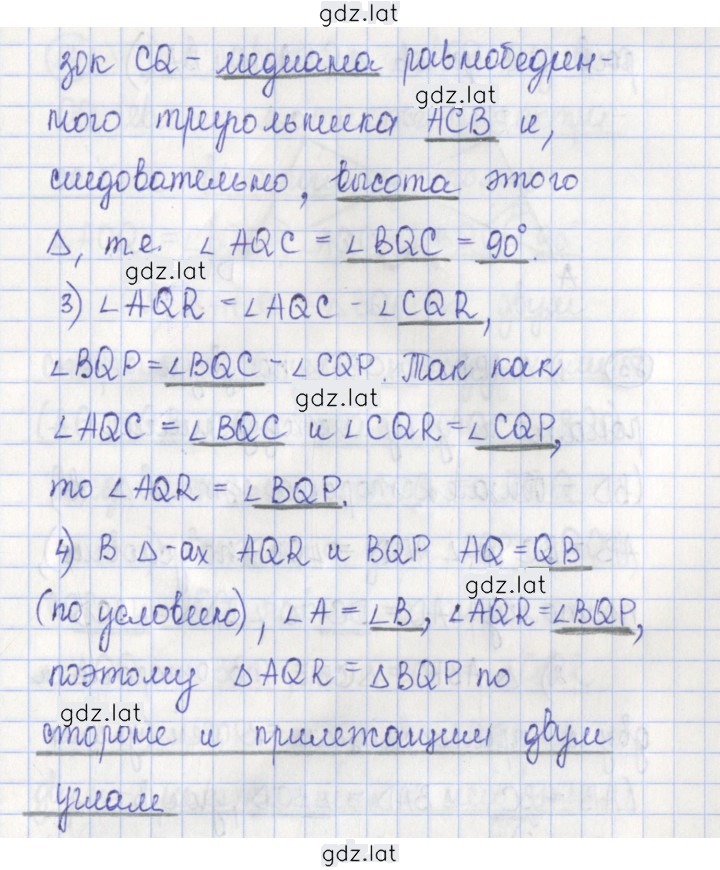 gdz.lat
зок CQ - медиана равнобедрен-
gdz.lat
ного треугольника ACB и,
следовательно, высота этого
Δ, т.е. ∠ AQC = ∠ BQC = 90°.
gdz.lat
3) ∠ AQR = ∠AQC - ∠CQR,
∠BQP = ∠BQC - ∠CQP. Так как
gdz.lat
∠AQC = ∠BQC и ∠CQR = ∠CQP,
то ∠AQR = ∠BQP.
4) В Δ-ах AQR и BQP AQ = QB
gdz.lat
(по условию), ∠A = ∠B, ∠AQR = ∠BQP,
поэтому ΔAQR = ΔBQP по
gdz.lat
стороне и прилежащим двум
углам
gdz.lat